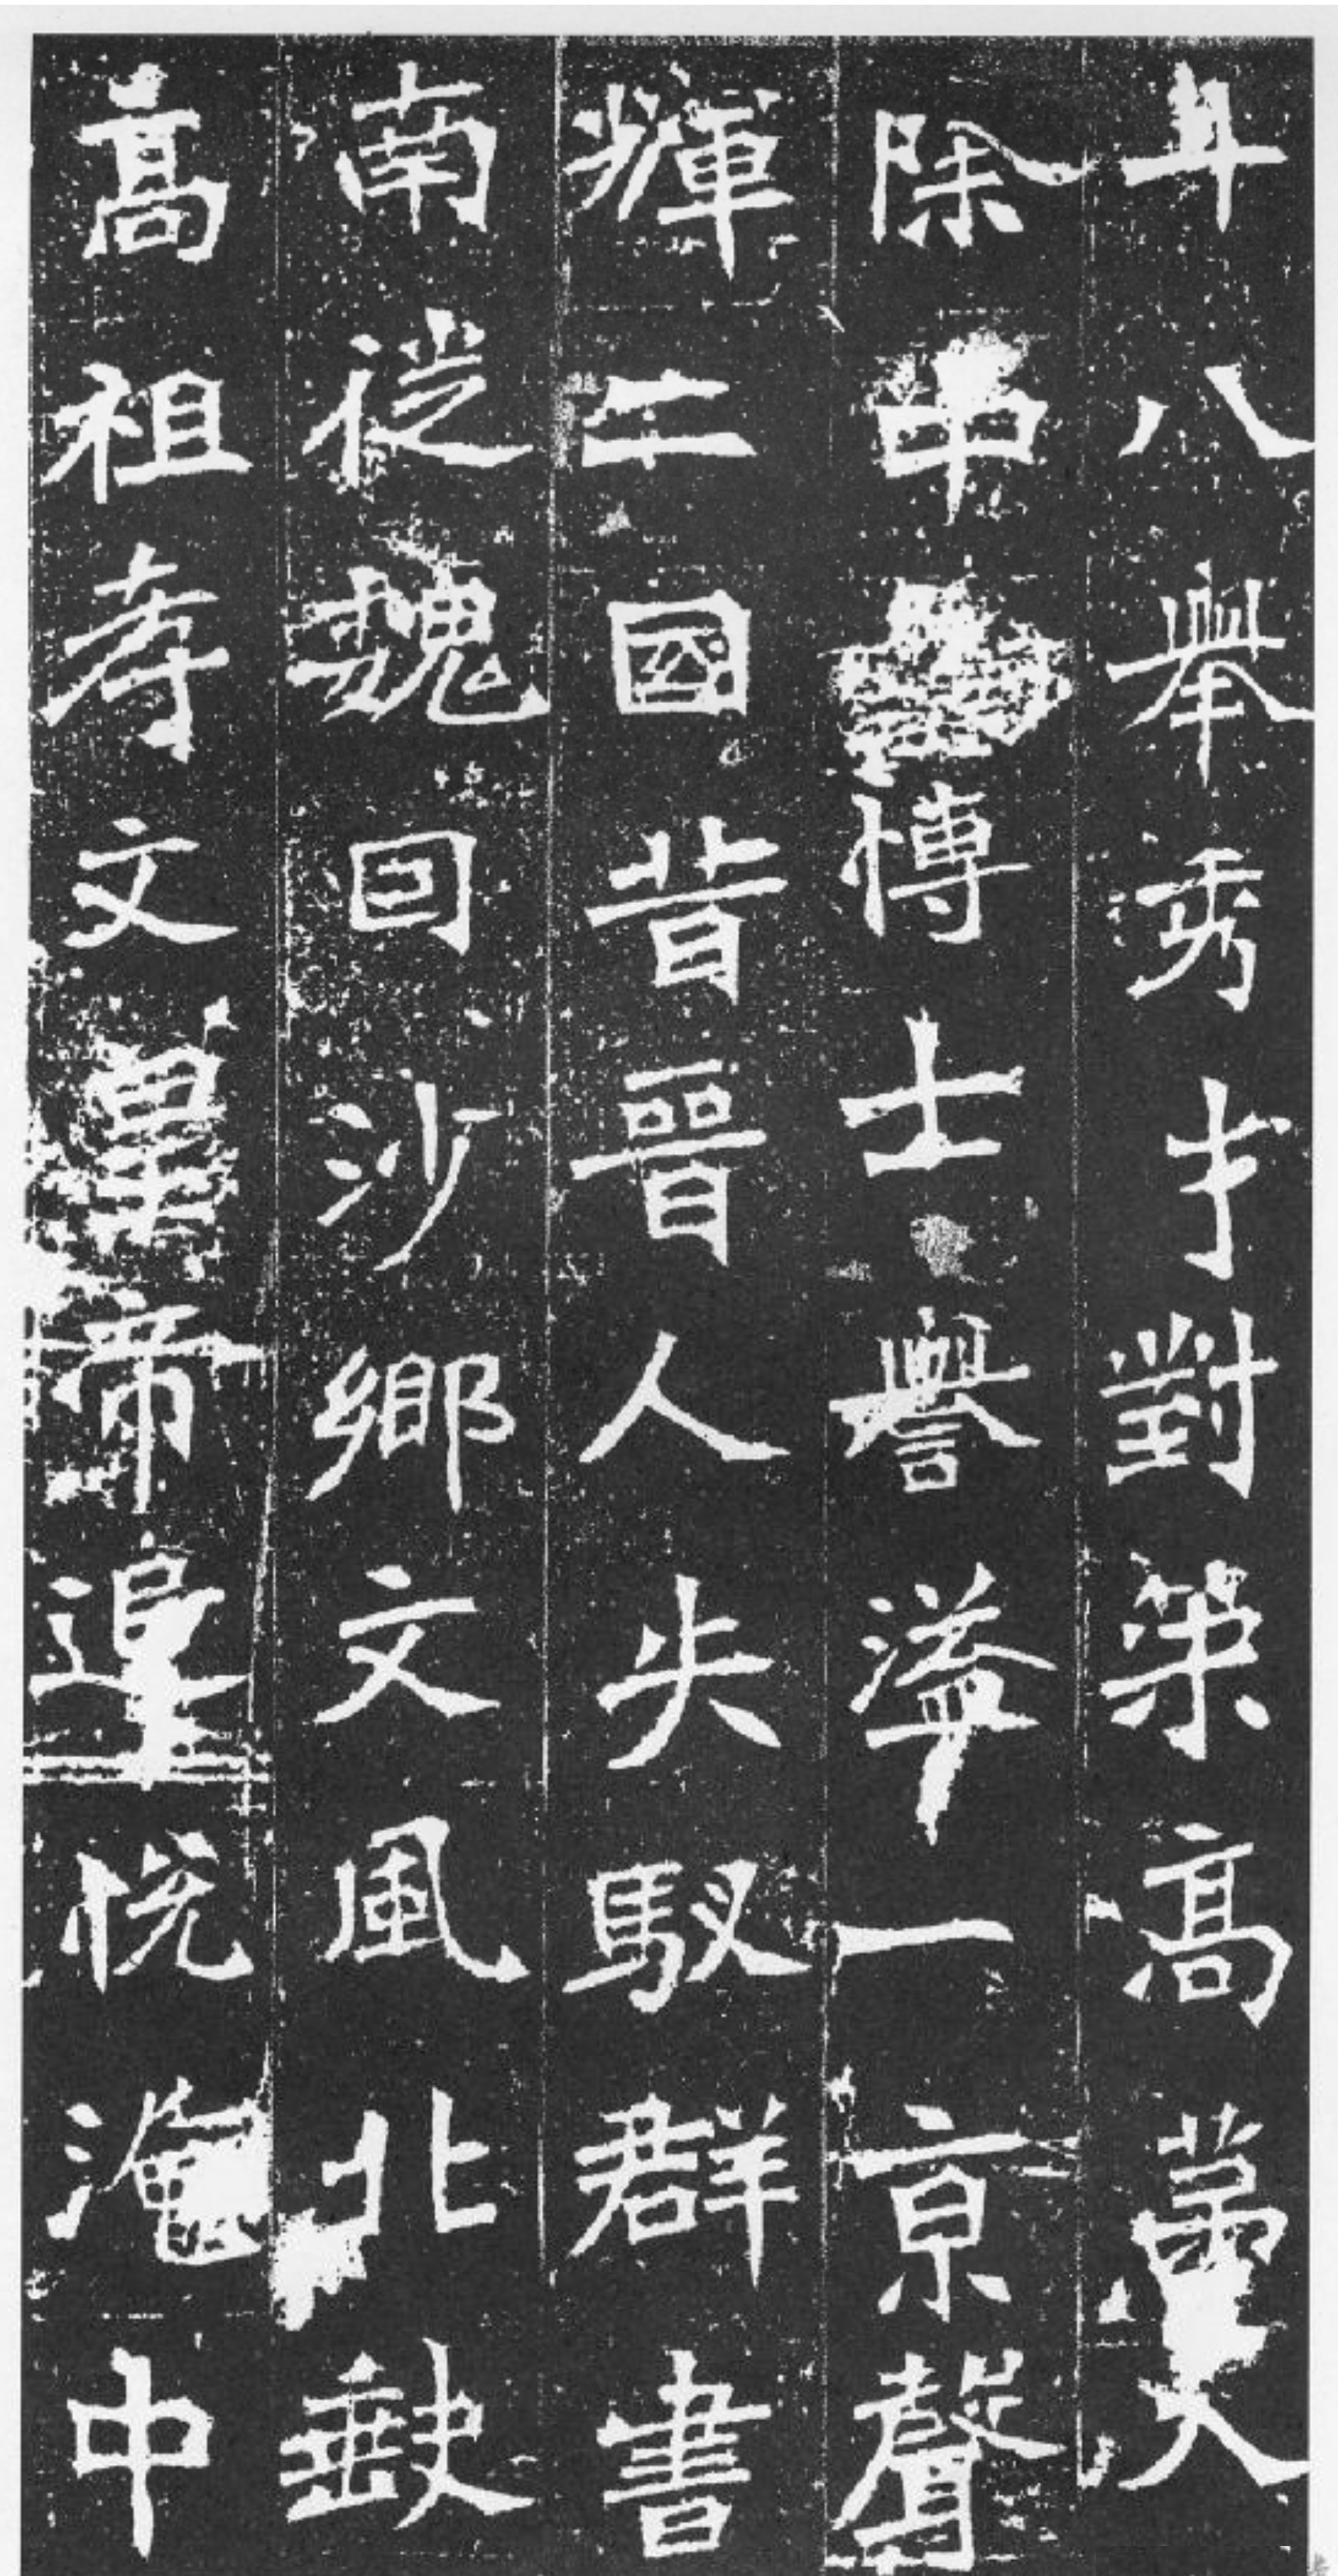 十八舉秀才對策高第入
除中博士譽溢一京聲
輝二國昔晉人失馭群書
南徙魏因沙鄉文風北缺
高祖孝文皇帝追悅淹中